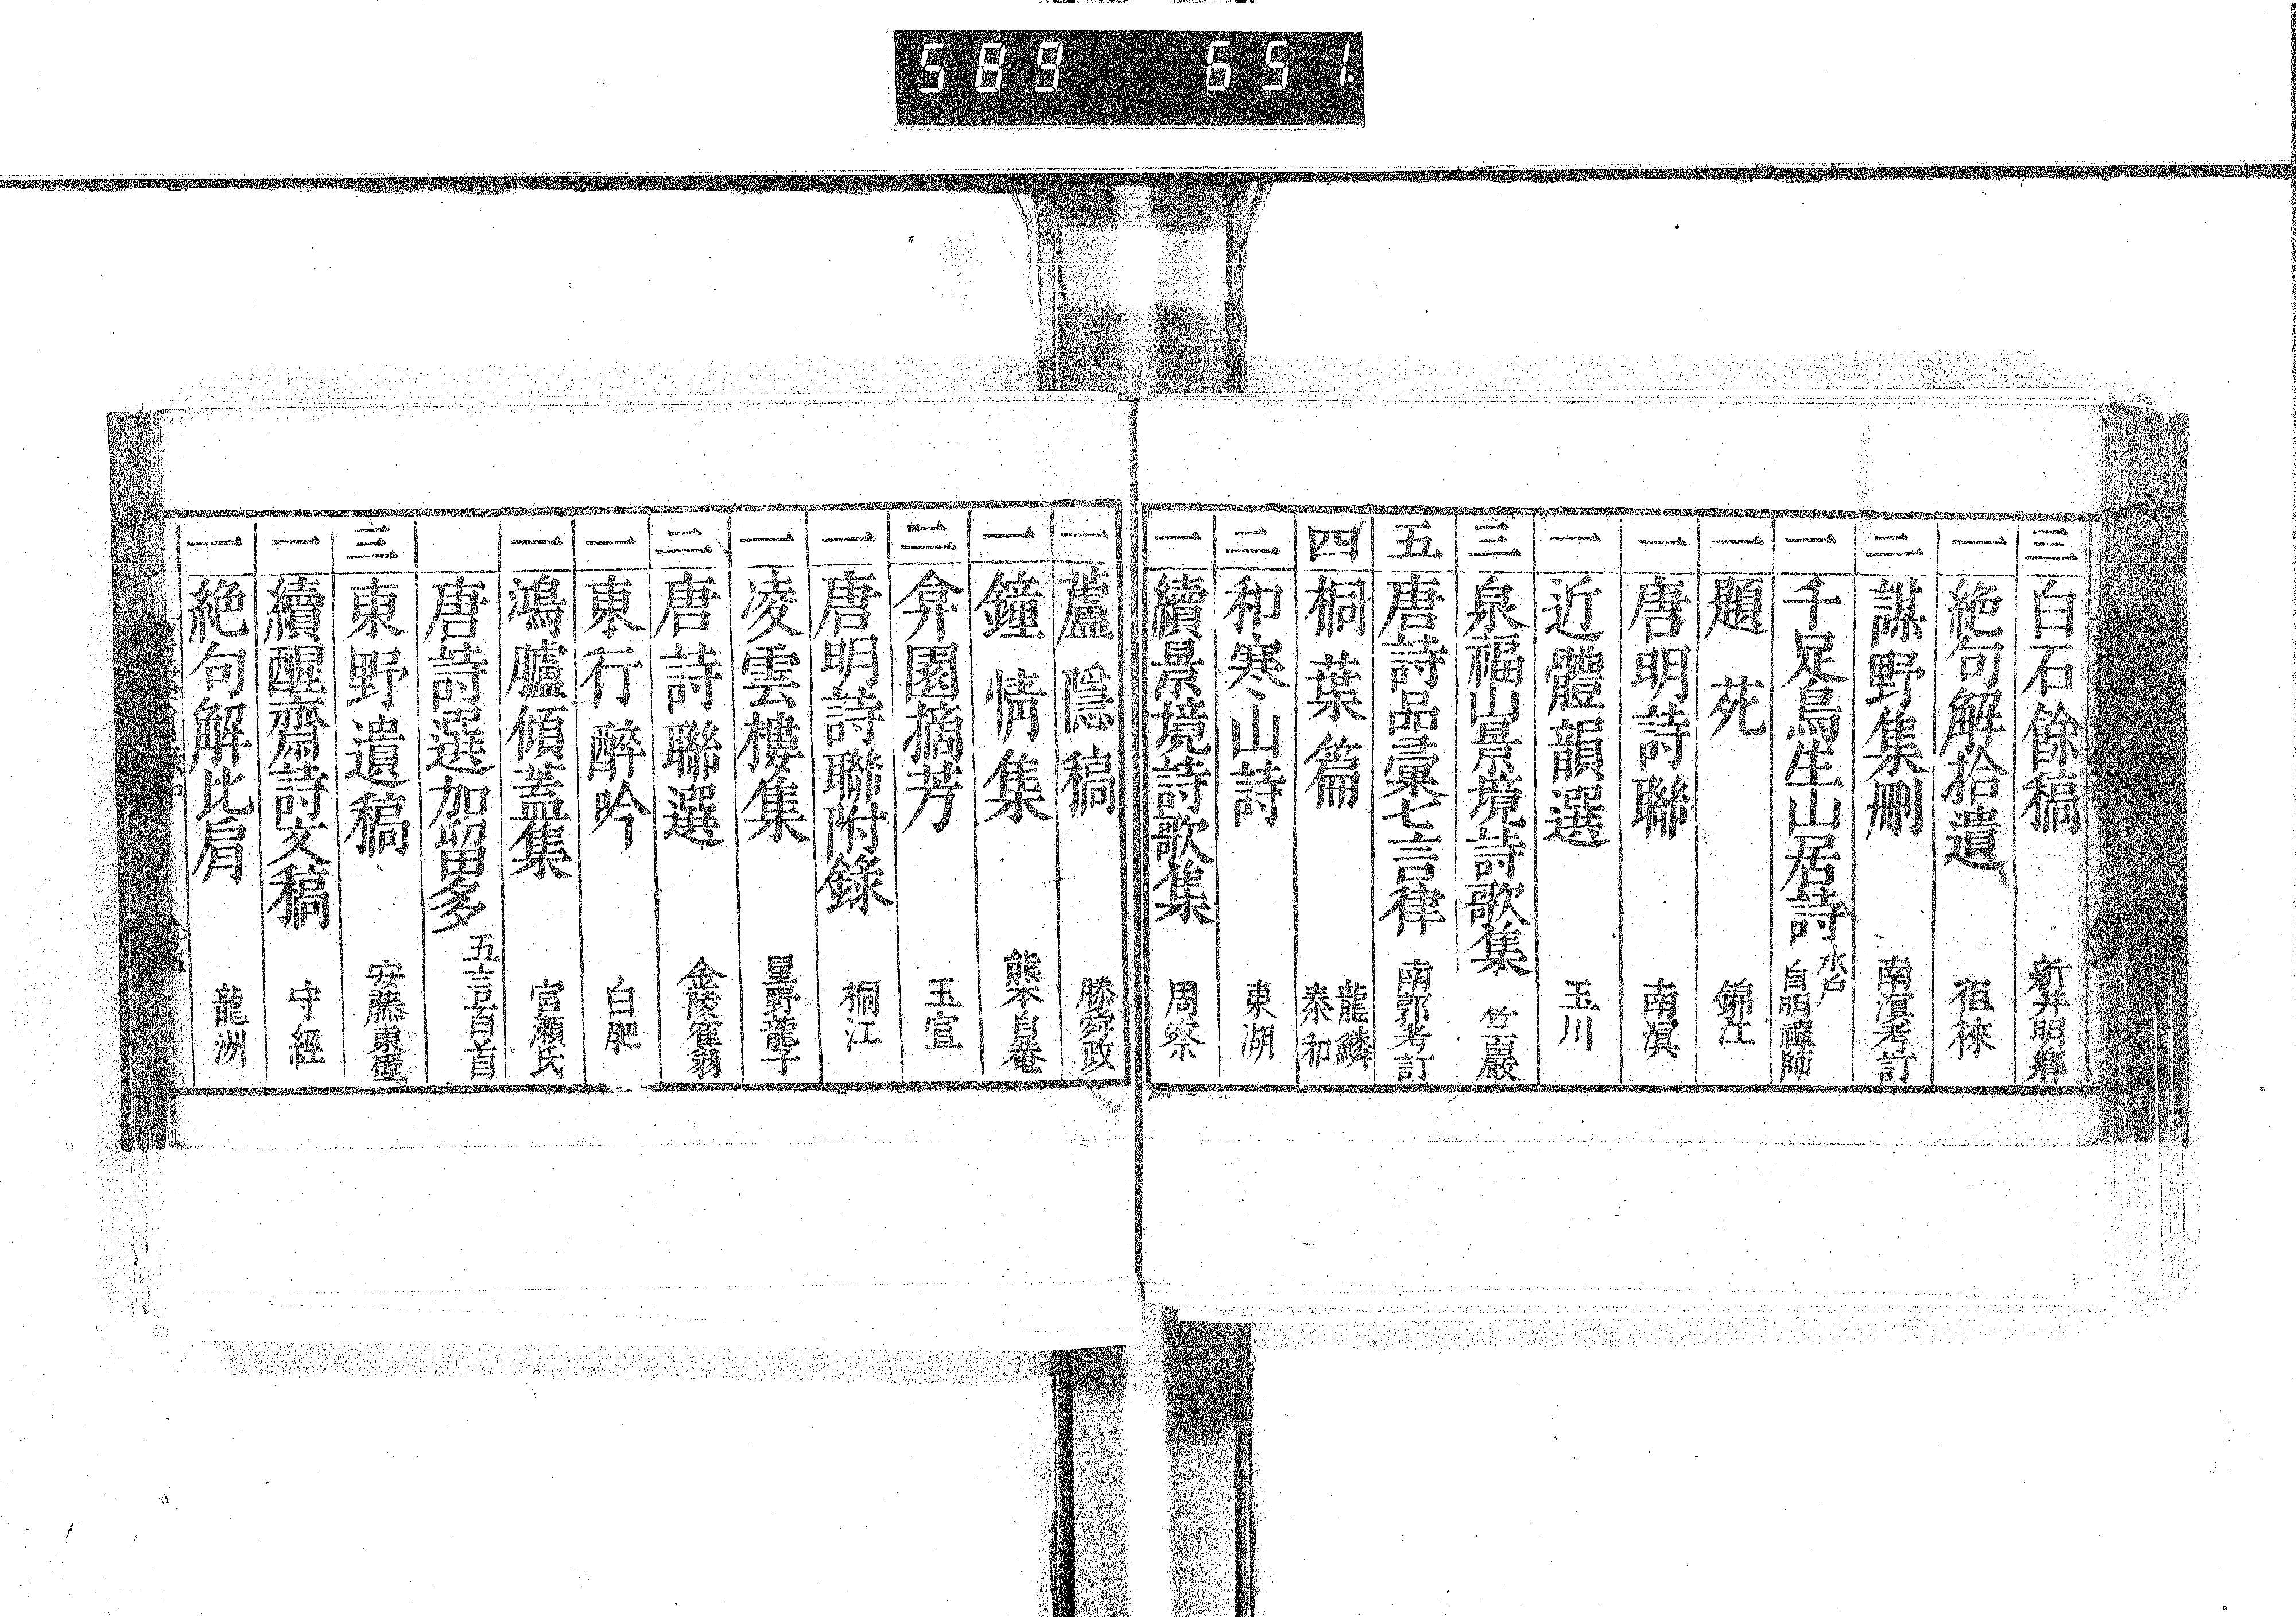 589 651.
三 白石餘稿 新井明鄉
一 絶句解拾遺 徂徠
二 謀野集刪 南溟考訂
一 千足鳥生山居詩 水戸 自明禪師
一 題苑 錦江
一 唐明詩聯 南溟
一 近體韻選 玉川
三 泉福山景境詩歌集 竺巖
五 唐詩品彙七言律 南郭考訂
四 桐葉篇 龍鱗 泰和
二 和寒山詩 東湖
一 續景境詩歌集 周察
一 蘆隱稿 滕舜政
一 鐘情集 熊本自菴
二 弇園摘芳 玉宣
一 唐明詩聯附錄 桐江
一 凌雲樓集 星野龍子
二 唐詩聯選 金陵霍翁
一 東行醉吟 白肥
一 鴻臚傾蓋集 宮瀨氏
唐詩選加留多 五言百首
三 東野遺稿 安藤東壁
一 續醒齋詩文稿 守經
一 絶句解比肩 龍洲